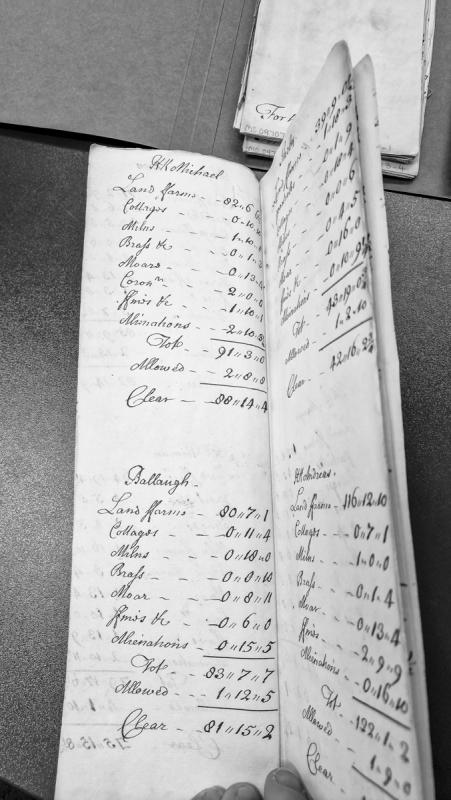 Kk Michael
Land ffarms - 82 " 6
Cottages - - 0 " 10
Milns - - 1 " 10
Brass &c - - 0 " 1
Moars - - 0 " 13
Coron - - 2 " 0
ffines &c - - 1 " 10
Alienations - - 2 " 10
Tot - 91 " 3 " 0
Allowed - - 2 " 8 " 8
Clear - 88 " 14 " 4
Ballaugh -
Land ffarms - 80 " 7 " 1
Cottages - - 0 " 11 " 4
Milns - - 0 " 18 " 0
Brass - - 0 " 8 " 10
Moar - - 0 " 8 " 11
ffines &c - 0 " 6 " 0
Alienations - 0 " 15 " 5
Tot - 83 " 7 " 7
Allowed - - 1 " 12 " 5
Clear - - 81 " 15 " 2
For
39 " 9
1 " 10
0 " 1 " 9
0 " 10 " 4
0 " 0 " 6
0 " 4 " 5
0 " 16 " 0
Alienations - 0 " 10 " 9
Tot - 43 " 19 " 0
Allowed - - 1 " 3 " 10
Clear - - 42 " 16 " 2
Kk Andreas .
Land ffarms - 116 " 12 " 10
Cottages - 0 " 7 " 1
Milns - - 1 " 0 " 0
Brass - - 0 " 1 " 4
Moar - - 0 " 13 " 4
ffines - - 2 " 9 " 9
Alienations - 0 " 16 " 10
Tot - 122 " 1 " 2
Allowed - - 1 " 9 " 0
Clear